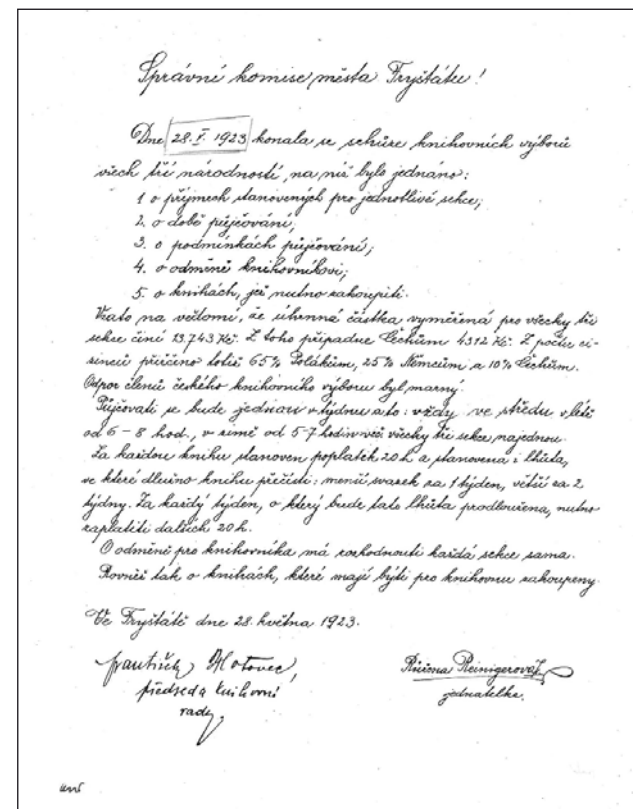 Správní komise města Fryštátu!
Dne 28. V. 1923 konala se schůze knihovních výborů
všech tří národností, na níž bylo jednáno:
1 o příjmech stanovených pro jednotlivé sekce;
2. o době půjčování;
3. o podmínkách půjčování;
4. o odměně knihovníkovi;
5. o knihách, jež nutno zakoupiti.
Vzato na vědomí, že úhrnná částka vyměřená pro všecky tři
sekce činí 13.743 Kč. Z toho připadne Čechům 4312 Kč. Z počtu ci-
zinců přiřčeno totiž 65% Polákům, 25% Němcům a 10% Čechům.
Odpor členů českého knihovního výboru byl marný.
Půjčovati se bude jednou v týdnu a to: vždy ve středu v létě
od 6 – 8 hod., v zimě od 5-7 hodin več všecky tři sekce najednou.
Za každou knihu stanoven poplatek 20 h a stanovena i lhůta,
ve které dlužno knihu přečísti: menší svazek za 1 týden, větší za 2
týdny. Za každý týden, o který bude tato lhůta prodloužena, nutno
zaplatiti dalších 20 h.
O odměně pro knihovníka má rozhodnouti každá sekce sama.
Rovněž tak o knihách, které mají býti pro knihovnu zakoupeny.
Ve Fryštátě dne 28. května 1923.
František Hotovec,
předseda knihovní
rady.
Růžena Reinigerová
jednatelka.